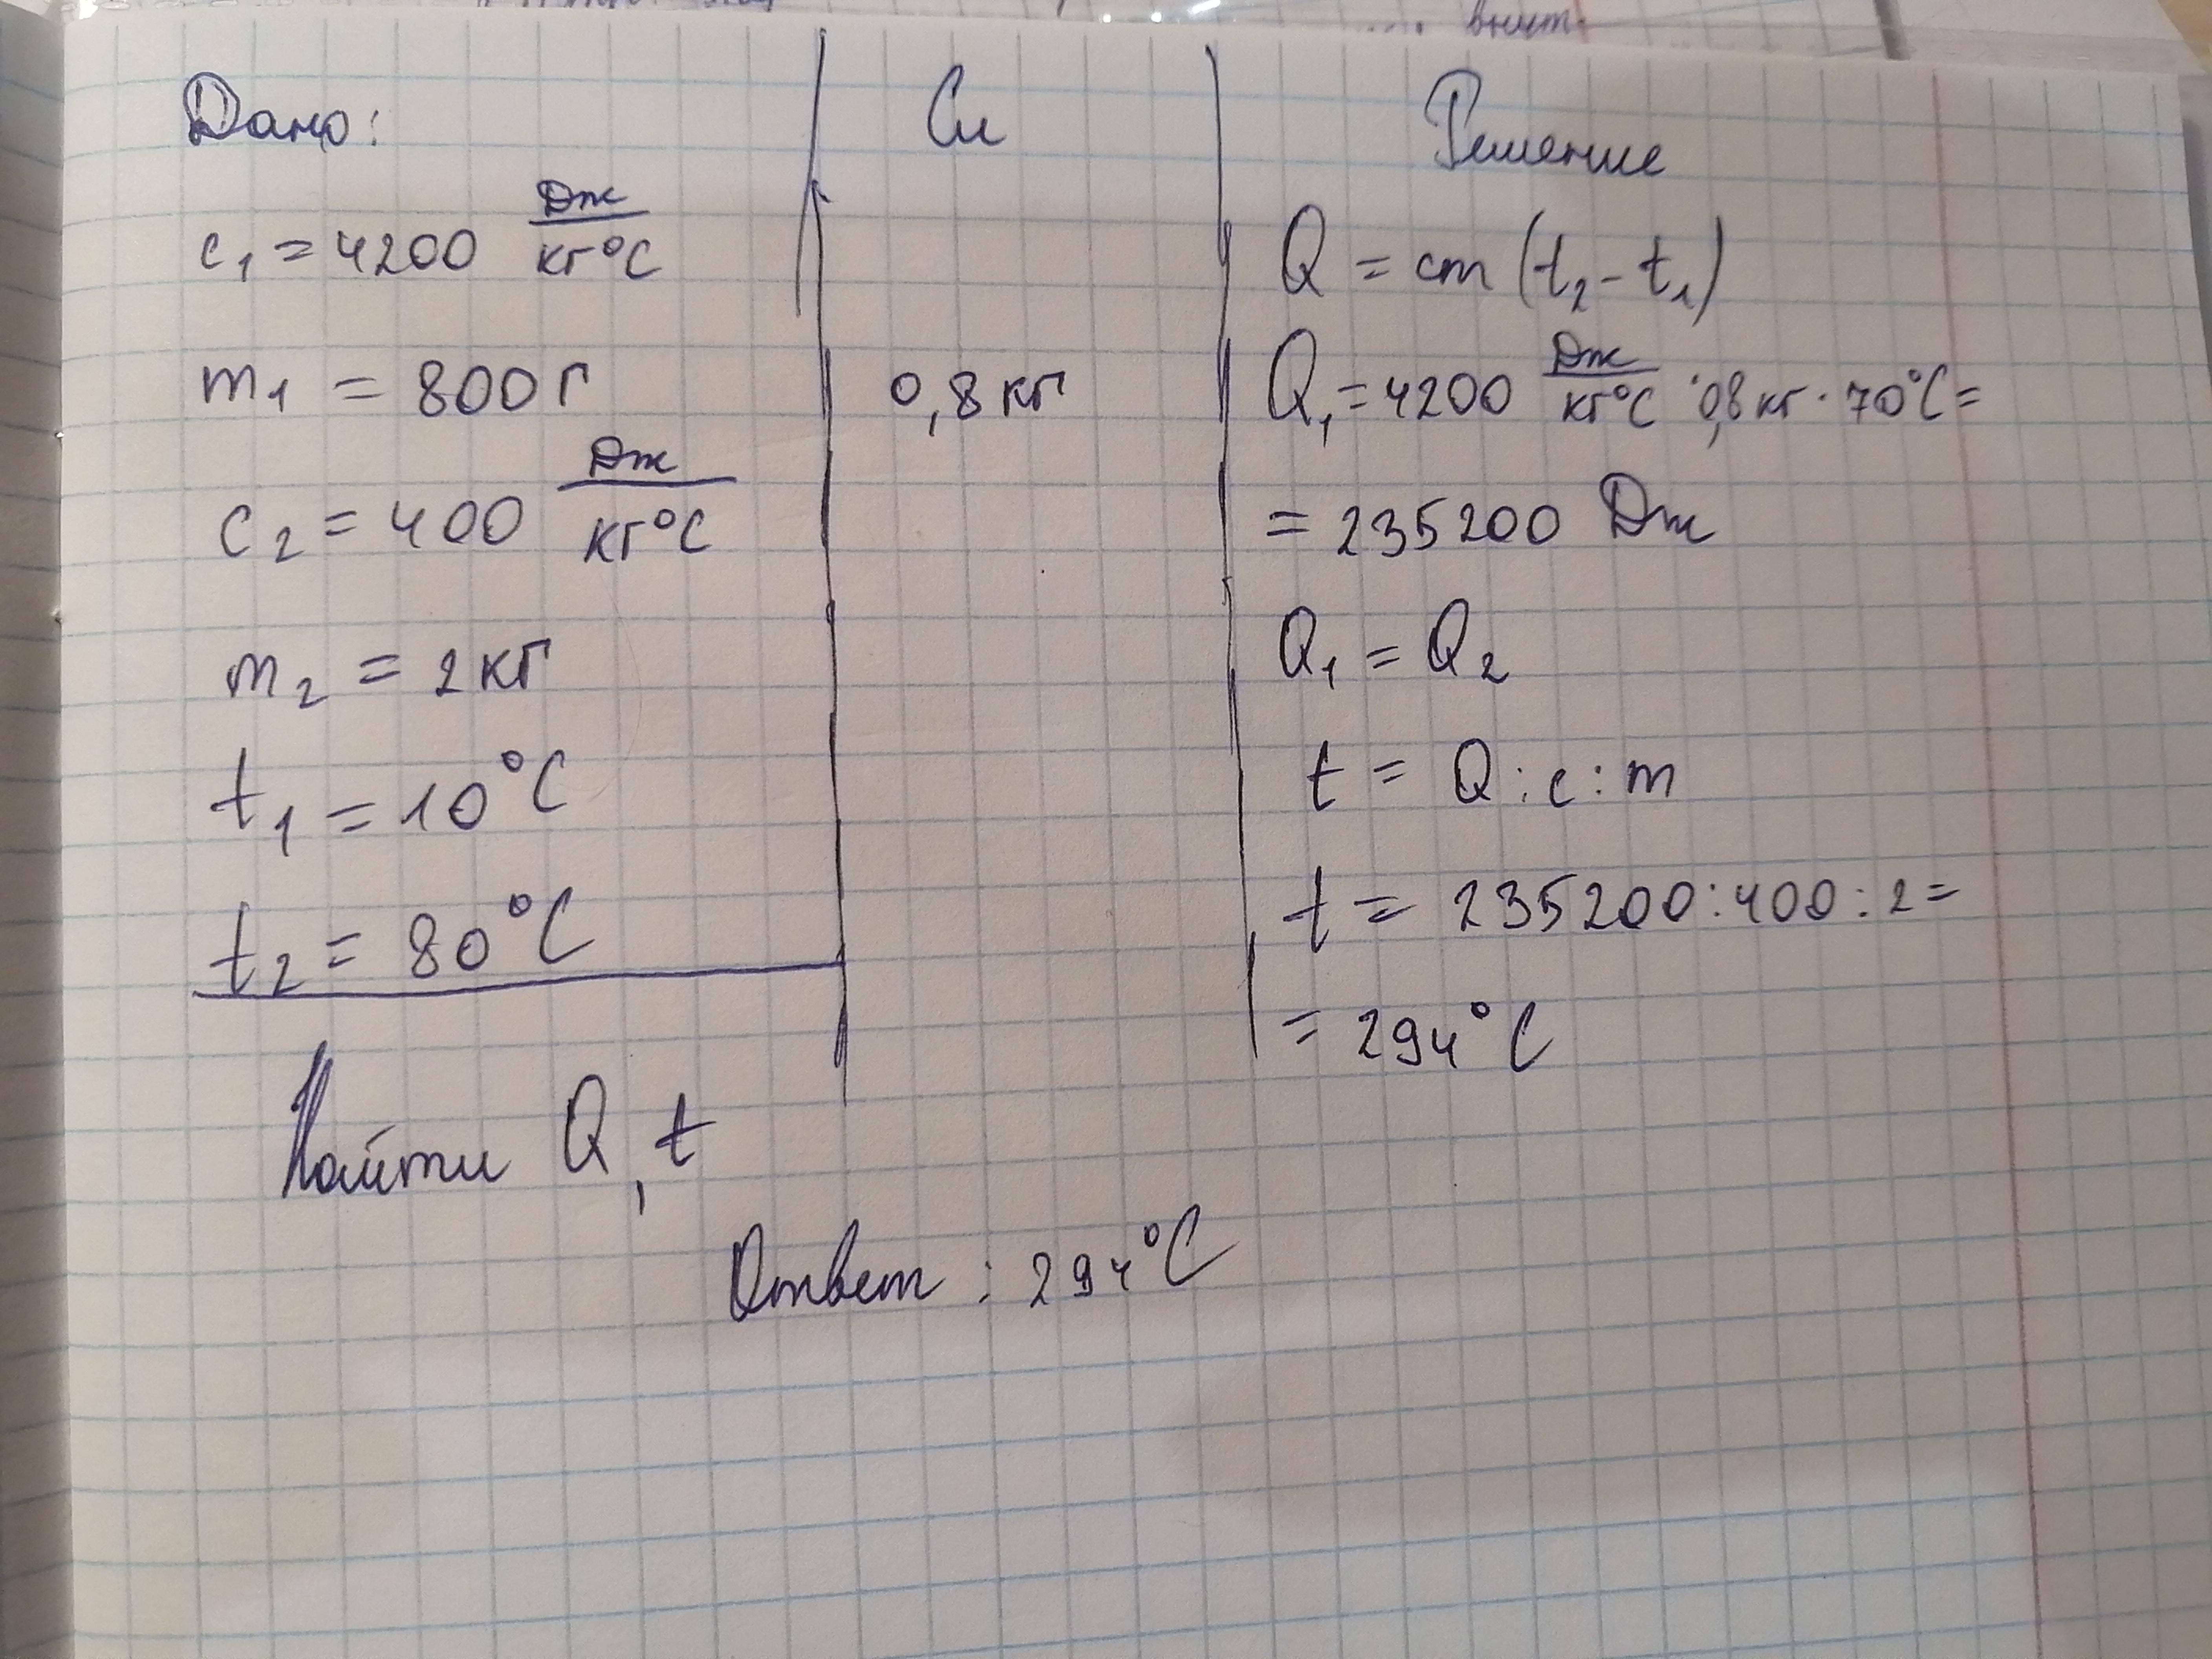 внут.
Дано:
c₁ = 4200 Дж/кг°C
m₁ = 800 г
c₂ = 400 Дж/кг°C
m₂ = 2 кг
t₁ = 10°C
t₂ = 80°C
Найти Q, t
Си
0,8 кг
Решение
Q = cm (t₂ - t₁)
Q₁ = 4200 Дж/кг°C · 0,8 кг · 70°C =
= 235200 Дж
Q₁ = Q₂
t = Q : c : m
t = 235200 : 400 : 2 =
= 294°C
Ответ : 294°C